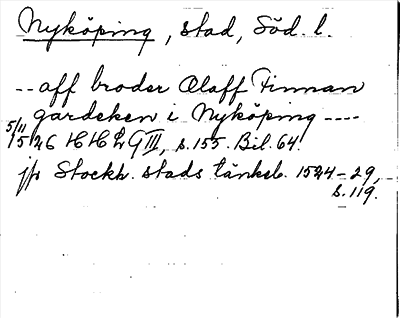 Nyköping, stad, Söd. l.
-- aff broder Olaff Finnan
gardeken i Nyköping ----
5/11 1526 HH L G III, s. 155. Bil. 64.
jfr Stockh. stads tänkeb. 1524-29,
s. 119.